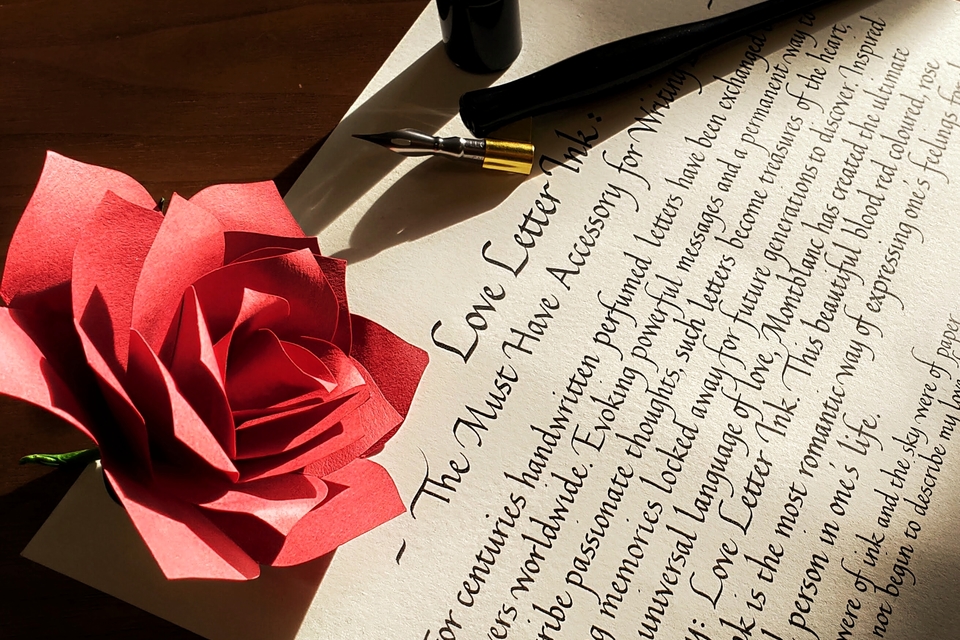 Love Letter Ink:
- The Must Have Accessory for Writing
For centuries handwritten perfumed letters have been exchanged
vers worldwide. Evoking powerful messages and a permanent way to
ribe passionate thoughts, such letters become treasures of the heart,
g memories locked away for future generations to discover. Inspired
universal language of love, Montblanc has created the ultimate
y: Love Letter Ink. This beautiful blood red coloured rose
k is the most romantic way of expressing one's feelings for
person in one's life.
were of ink and the sky were of paper
not begin to describe my love